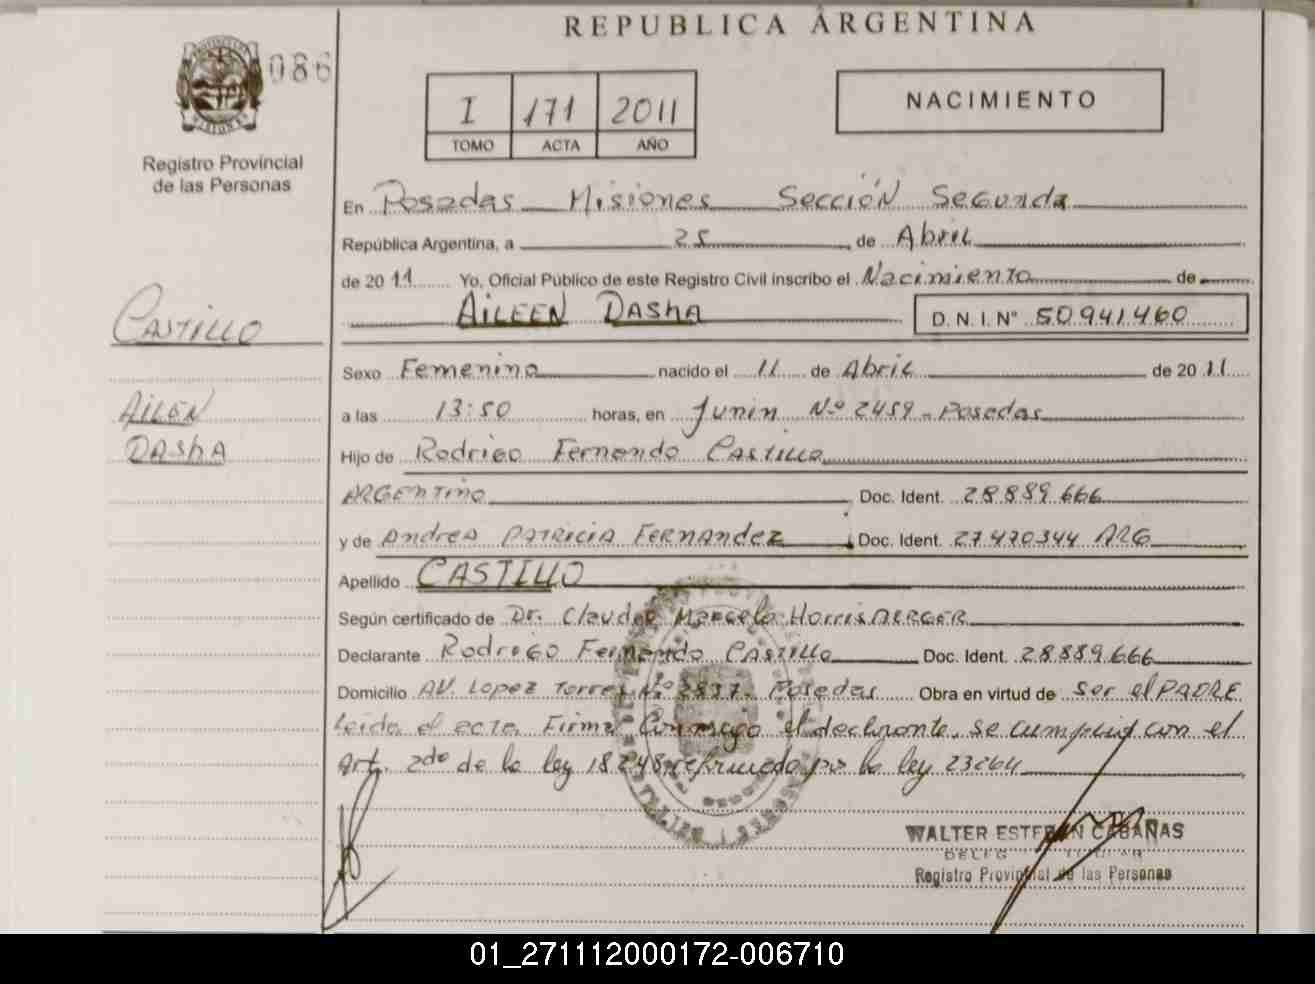 REPUBLICA ARGENTINA
086
MISIONES
Registro Provincial
de las Personas
I 171 2011
TOMO ACTA AÑO
NACIMIENTO
En Posadas Misiones Sección Segunda
República Argentina, a 25 de Abril
de 2011 Yo, Oficial Público de este Registro Civil inscribo el Nacimiento de
AILEEN DASHA D. N. I. N° 50941460
CASTILLO
AILEN
DASHA
Sexo Femenino nacido el 11 de Abril de 2011
a las 13:50 horas, en Junin Nº 2459 - Posadas
Hijo de Rodrigo Fernando Castillo
ARGENTINO Doc. Ident. 28.889.666
y de Andrea PATRICIA FERNANDEZ Doc. Ident. 27.470344 ARG
Apellido CASTILLO
Según certificado de Dr. Marcelo
Declarante Rodrigo Fernando CASTILLO Doc. Ident. 28.889.666
Domicilio AV. Lopez Torres Nº 3837 - Posadas Obra en virtud de ser el PADRE
Leida el acta Firma Conmigo el declarante. se cumplió con el
Art. 2do de la ley 18248 por la ley 23264
WALTER ESTEBAN CABAÑAS
Registro Provincial de las Personas
01_271112000172-006710